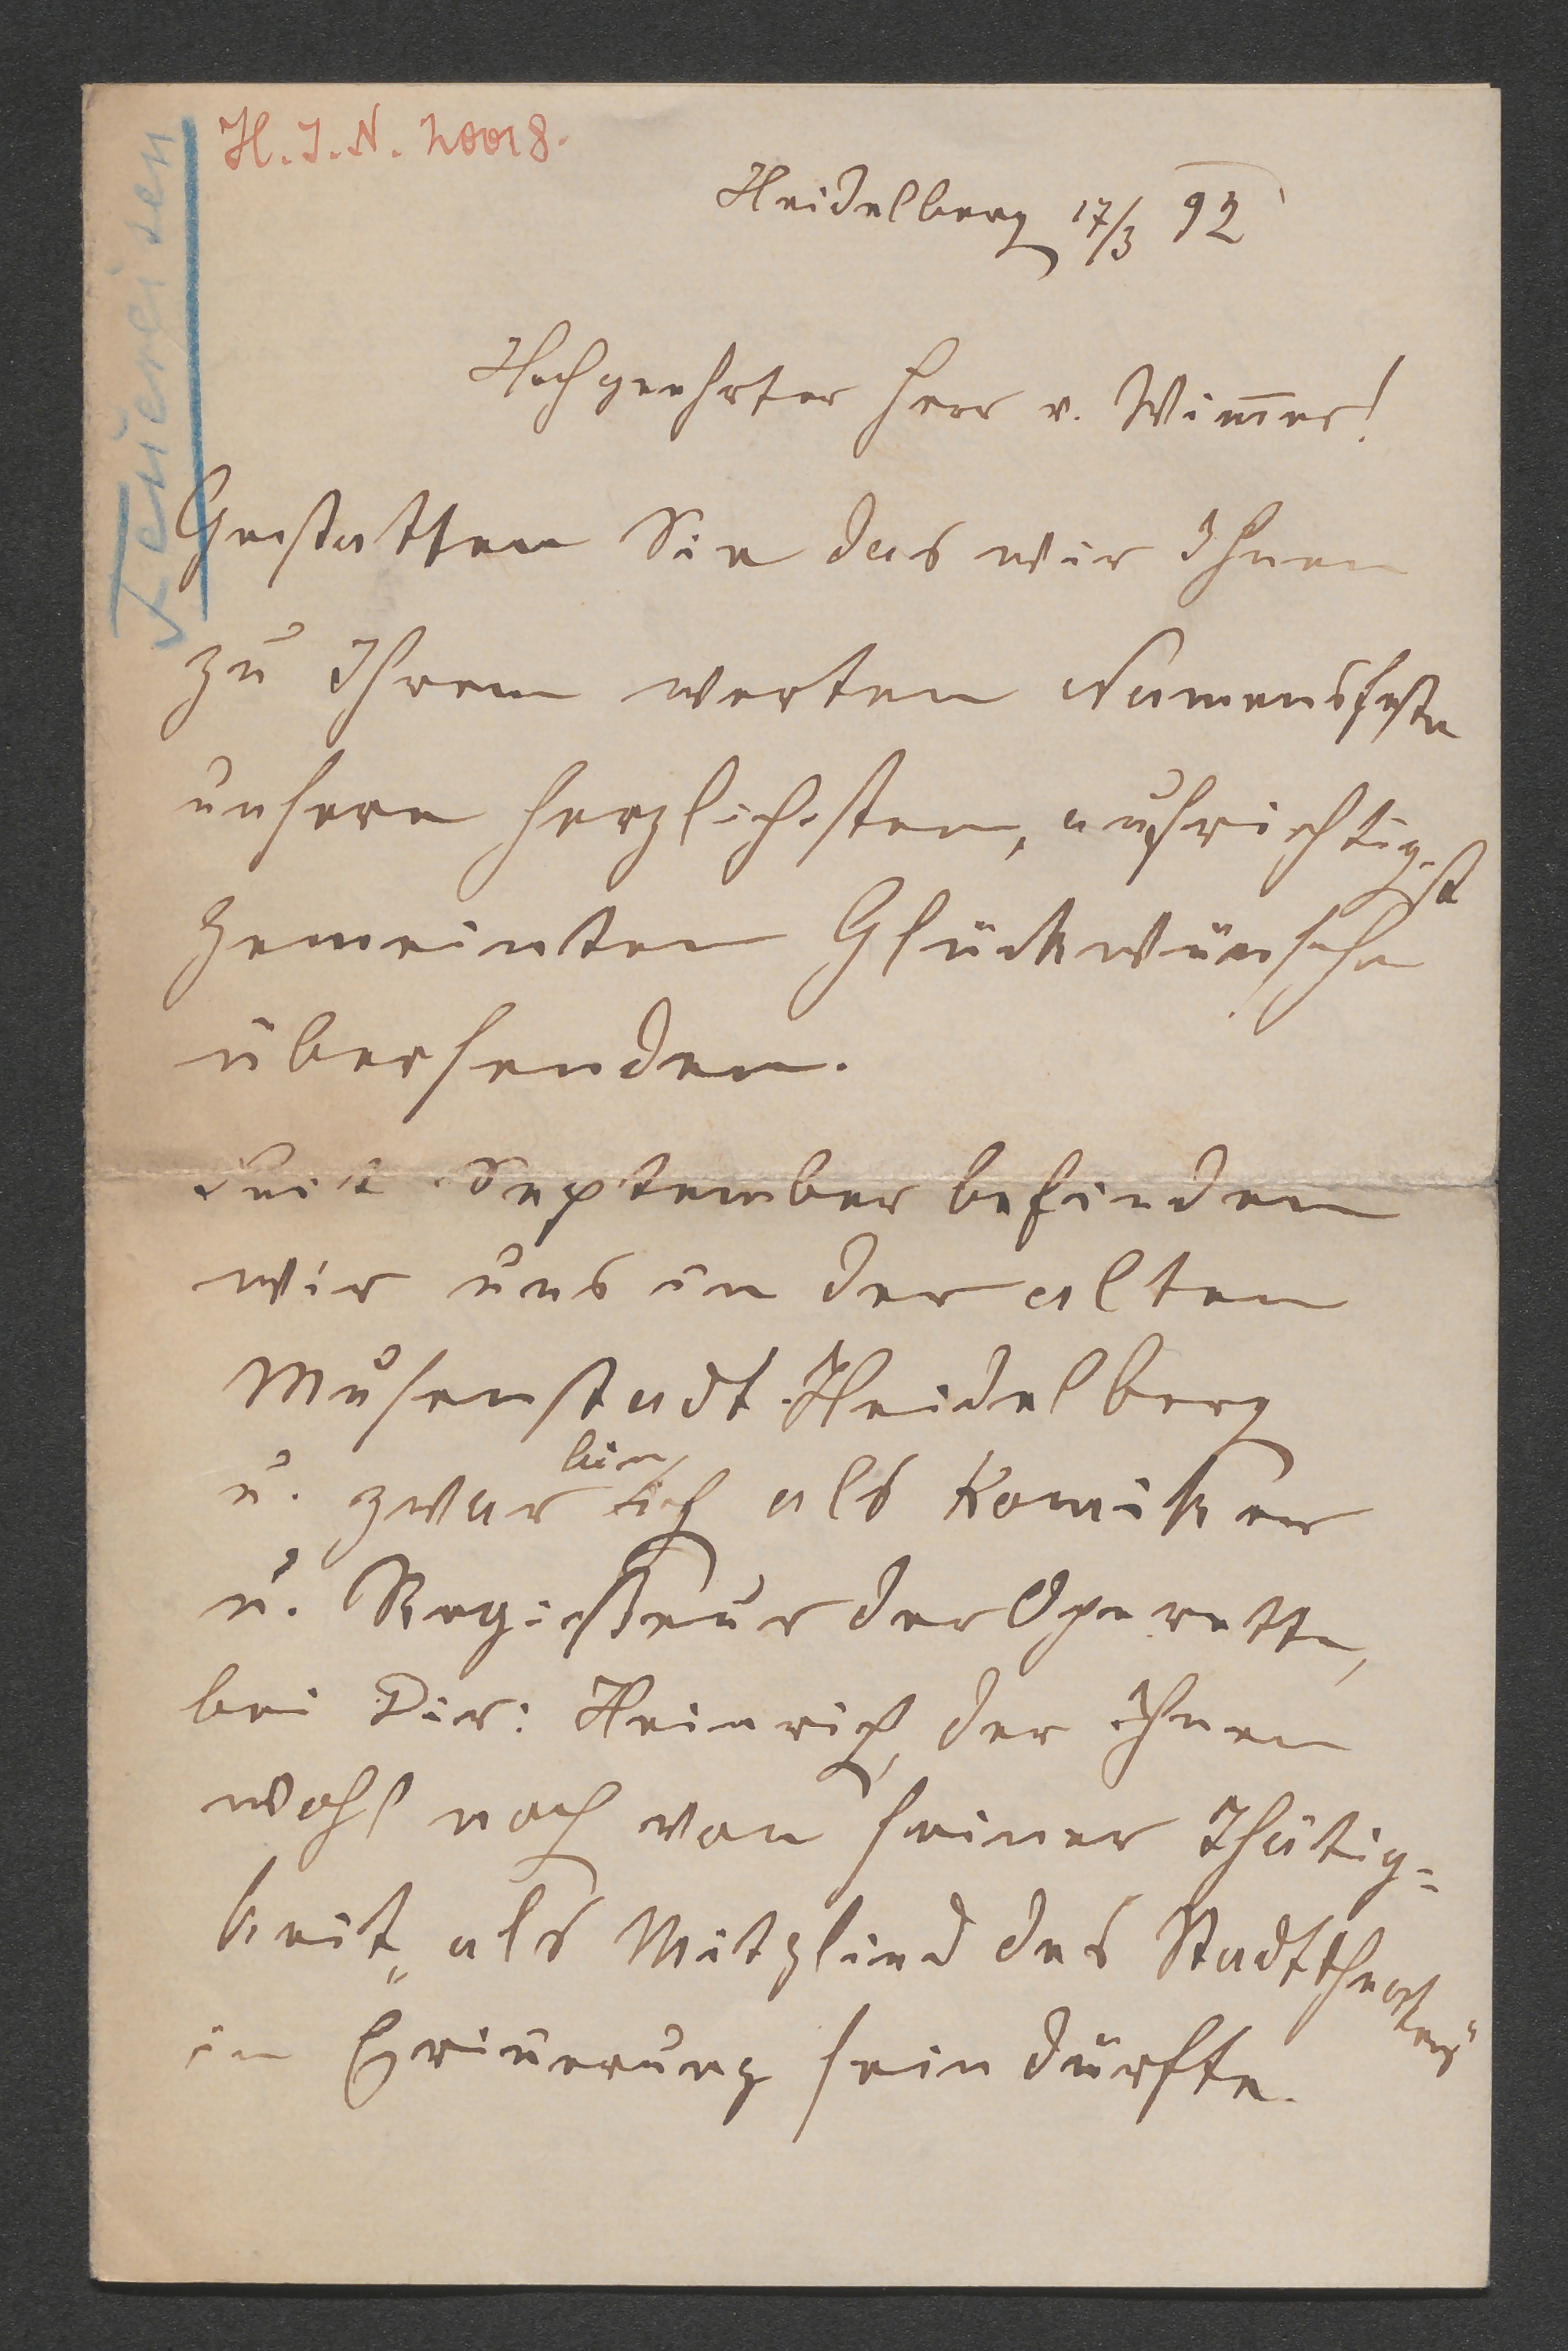 H.I.N. 20018.
Feuereisen
Heidelberg 17/3 92
Hochgeehrter Herr v. Wim̅er!
Gestatten Sie das wir Ihnen
zu Ihrem werten Namensfeste
unsere herzlichsten, aufrichtigst
gemeinten Glückwünsche
übersenden.
Seit September befinden
wir uns in der alten
Musenstadt Heidelberg
u. zwar bin ich als Komiker
u. Regisseur der Operette,
bei Dir: Heinrich, der Ihnen
wohl noch von seiner Thätig=
keit „als Mitglied des Stadttheaters“
in Erin̅erung sein dürfte.